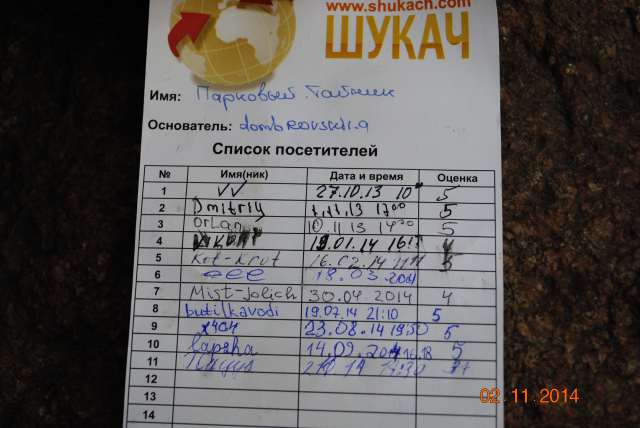 www.shukach.com
ШУКАЧ
Имя: Парковый Тайник
Основатель: dombrovskiy.a
Список посетителей
№ Имя(ник) Дата и время Оценка
1 VV 27.10.13 10 5
2 Dmitriy 1.11.13 17:00 5
3 Orlan 10.11.13 5
4 19.01.14 4
5 Kot-krot 16.02.14 5
6 eee 18.03.2014
7 Mist-Jolich 30.04.2014 4
8 butilkavodi 19.07.14 21:10 5
9 23.08.14 19:50 5
10 lapsha 14.09.2014 16.18 5
11
12
13
14
02 11 2014